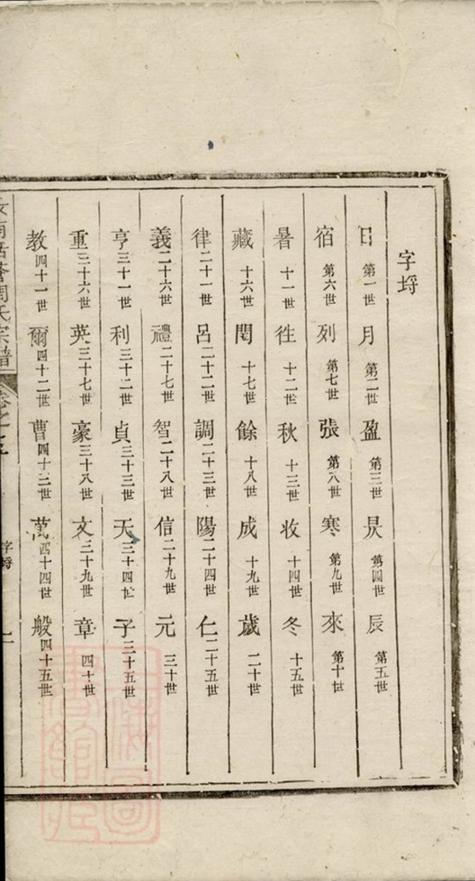 字埒
日第一世月第二世盈第三世昃第四世辰第五世
宿第六世列第七世張第八世寒第九世來第十世
暑十一世徃十二世秋十三世收十四世冬十五世
藏十六世閏十七世餘十八世成十九世歲二十世
律二十一世呂二十二世調二十三世陽二十四世仁二十五世
義二十六世禮二十七世智二十八世信二十九世元三十世
亨三十一世利三十二世貞三十三世天三十四世子三十五世
重三十六世英三十七世豪三十八世文三十九世章四十世
教四十一世爾四十二世曹四十三世萬四十四世般四十五世
周氏宗譜 卷之 字埒